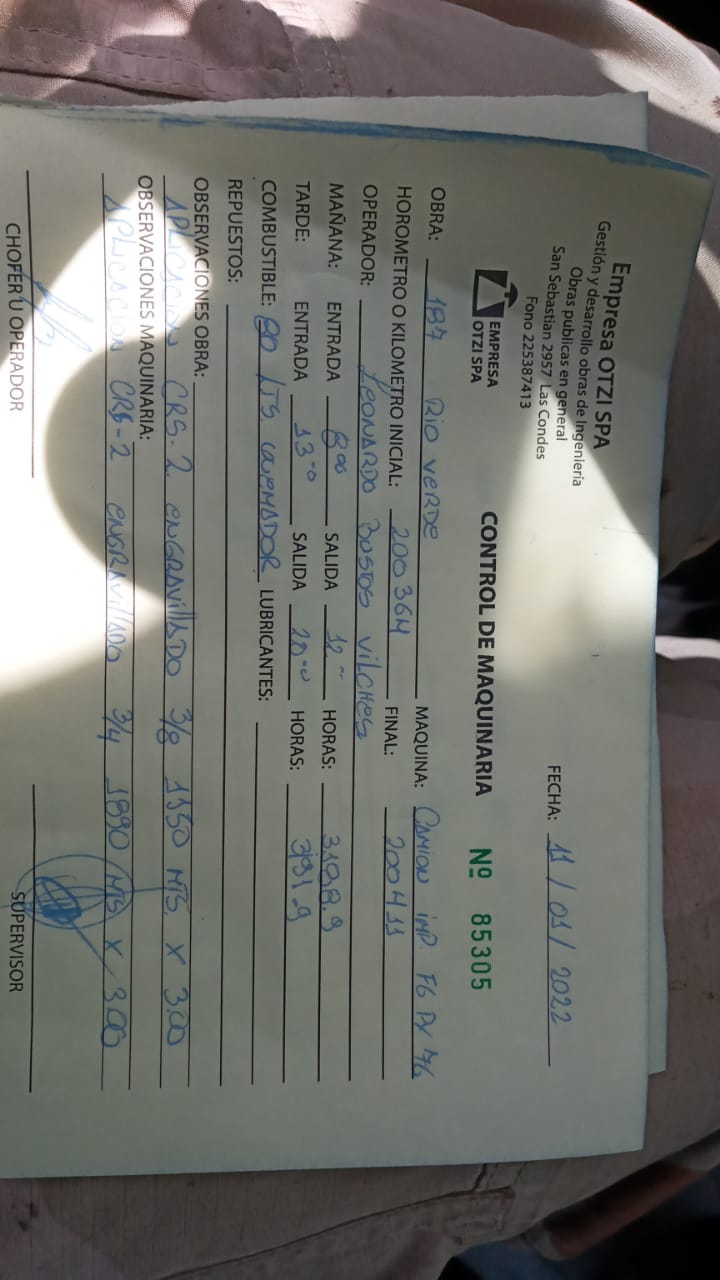 Empresa OTZI SPA
Gestión y desarrollo obras de Ingeniería
Obras publicas en general
San Sebastian 2957 Las Condes
Fono 225387413
EMPRESA
OTZI SPA
FECHA: 11 / 01 / 2022
CONTROL DE MAQUINARIA Nº 85305
OBRA: 187 Rio VerDe MAQUINA: CAMION imp. FG PX 76
HOROMETRO O KILOMETRO INICIAL: 200364 FINAL: 200411
OPERADOR: LeonARDO BUSTOS VilCHes
MAÑANA: ENTRADA 8:00 SALIDA 12 HORAS: 3188.9
TARDE: ENTRADA 13 SALIDA 20 HORAS: 3191.9
COMBUSTIBLE: 80 LTS. QUEMADOR LUBRICANTES:
REPUESTOS:
OBSERVACIONES OBRA:
APLICACION CRS-2 enGRAVillADO 3/8 1150 MTS. X 3.00
OBSERVACIONES MAQUINARIA:
APLICACION CRS-2 enGRAVillADO 3/4 1890 MTS X 3.00
CHOFER U OPERADOR SUPERVISOR